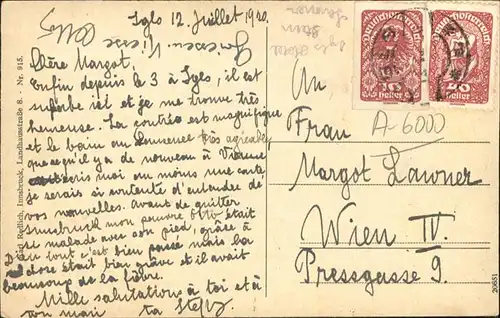 Igls 12 Juillet 1920.
Chère Margot,
Enfin depuis le 3 à Igls, il est
superbe ici et je me trouve très
heureuse. La contrée est magnifique
et le bain au très agreable
qu'y a de nouveau à Vienne
moi au moins une carte
je serais si contente d'entendre de
vos nouvelles. Avant de quitter
Innsbruck mon pauvre Otto était
malade avec son pied, grâce à
Dieu tout c'est bien passé mais la
chose était bien grave et il avait
beaucoup de la fièvre.
Mille salutations à toi et à
ton mari ta
An
Frau
A-6000
Margot Lawner
Wien IV.
Pressgasse 9.
Redlich, Innsbruck, Landhausstraße 8. - Nr. 915.
20651
10
Heller
20
Heller